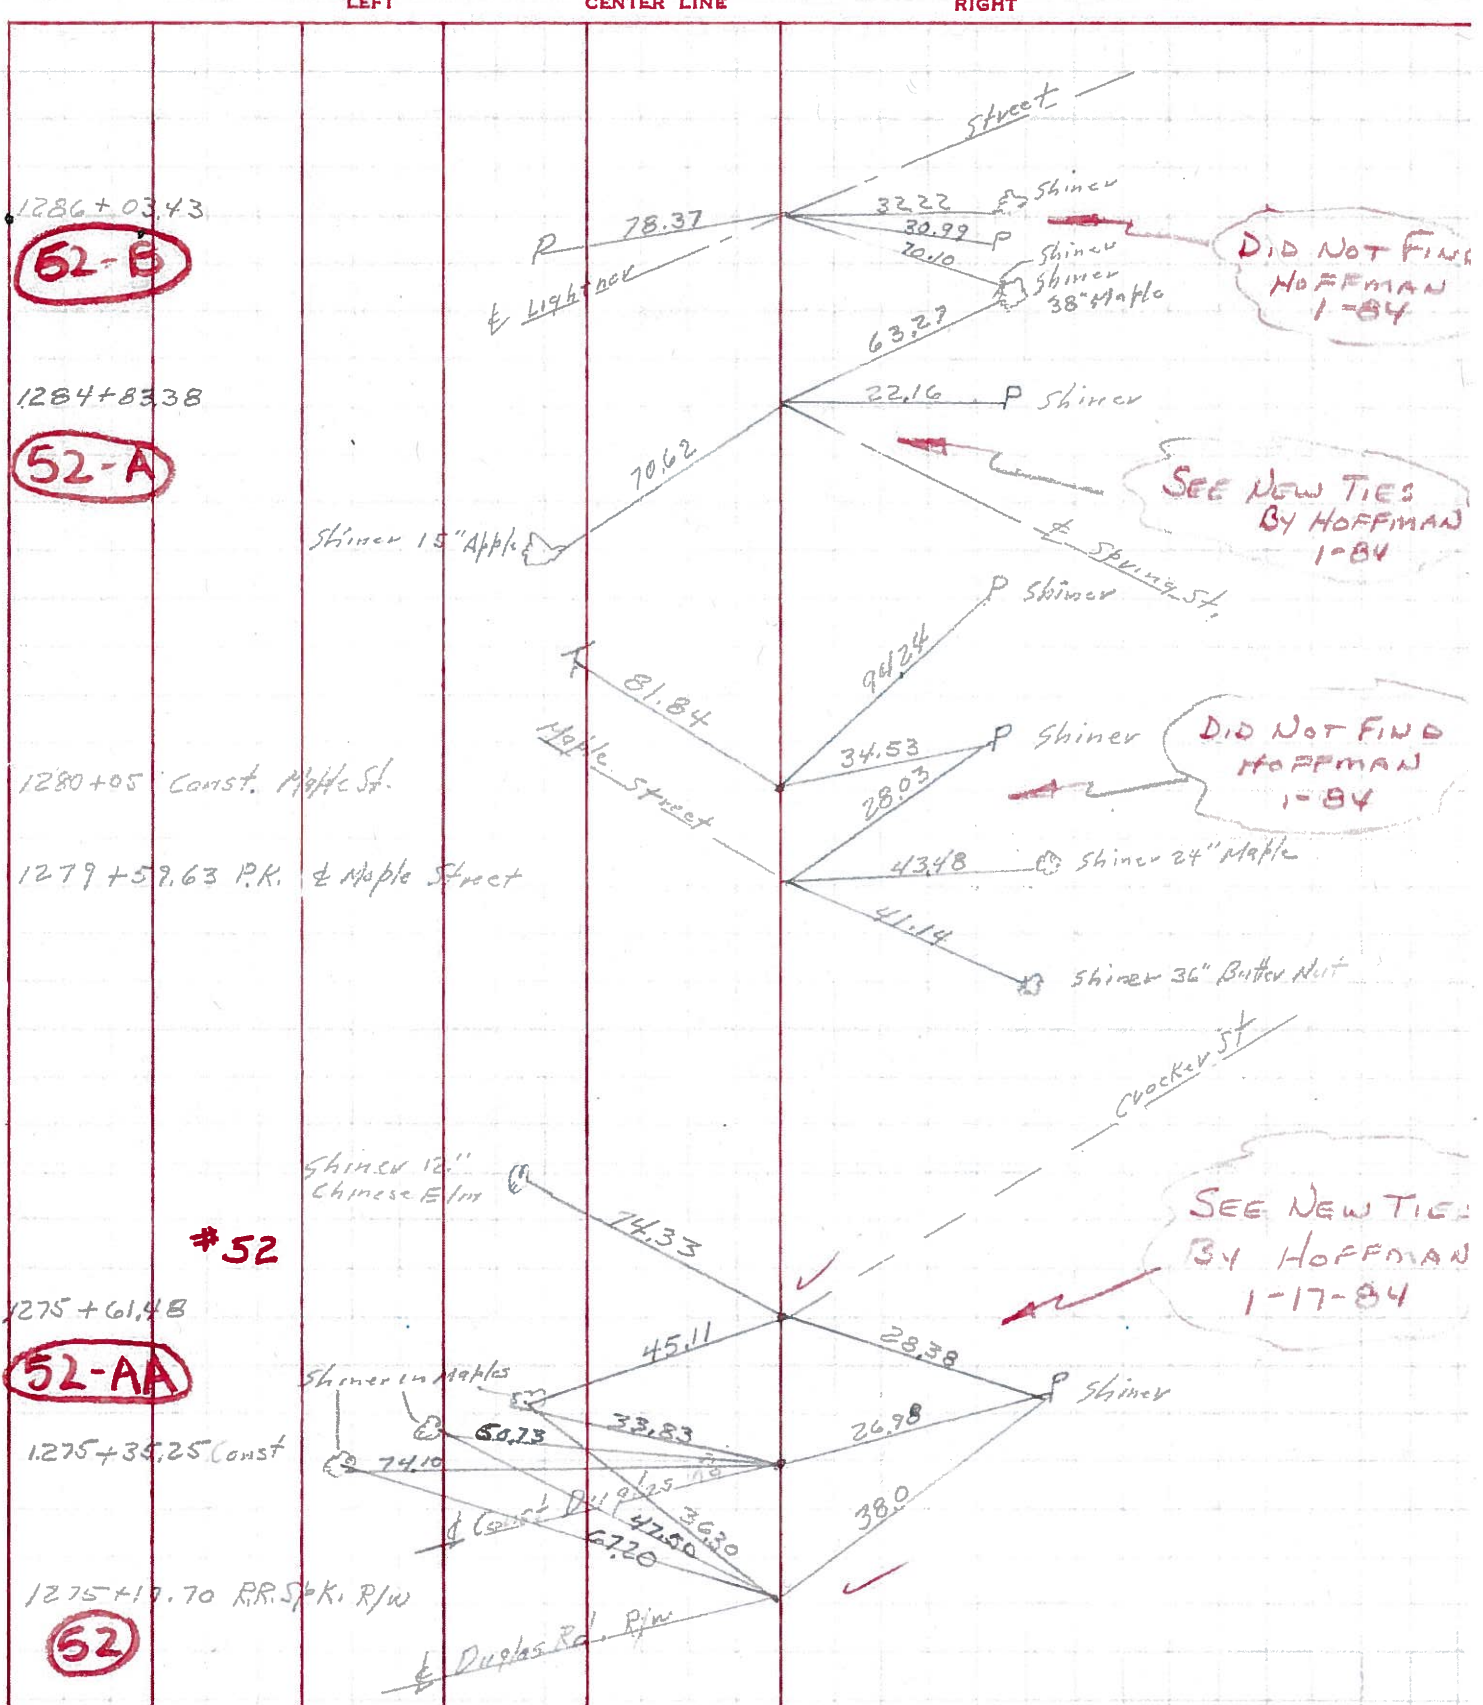 LEFT CENTER LINE RIGHT
Street
1286+03.43
52-B
78.37
32.22 Shiner
30.99 P
70.10 Shiner
Shiner
38" Maple
P
℄ Lightner
DID NOT FIND
HOFFMAN
1-84
63.27
1284+83.38
22.16 P Shiner
52-A
70.62
Shiner 15" Apple
SEE NEW TIES
BY HOFFMAN
1-84
℄ Spring St.
P Shiner
94.24
81.84
Maple Street
34.53 P Shiner
28.03
DID NOT FIND
HOFFMAN
1-84
1280+05 Const. Maple St.
1279+59.63 P.K. ℄ Maple Street
43.48 Shiner 24" Maple
41.14
Shiner 36" Butter Nut
Crocker St
Shiner 12"
Chinese Elm
74.33
#52
SEE NEW TIES
BY HOFFMAN
1-17-84
1275+61.48
52-AA
45.11
28.38
P Shiner
Shiner in Maples
1275+35.25 Const
50.73
33.83
26.98
74.10
℄ Const
36.30
47.50
67.20
38.0
1275+17.70 R.R. Spk. R/W
52
℄ Duglas Rd. R/W